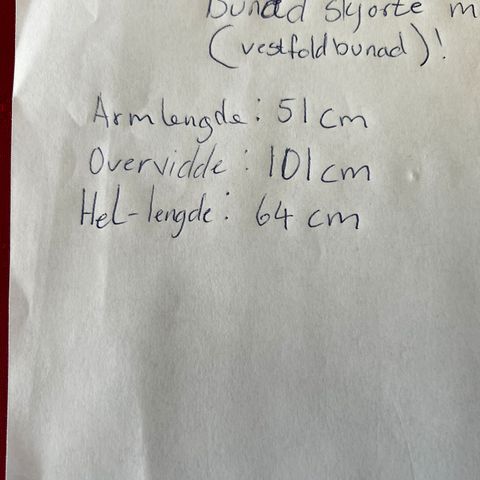 Bunad skjorte m
(vestfoldbunad)!
Armlengde: 51 cm
Overvidde: 101 cm
Hel-lengde: 64 cm